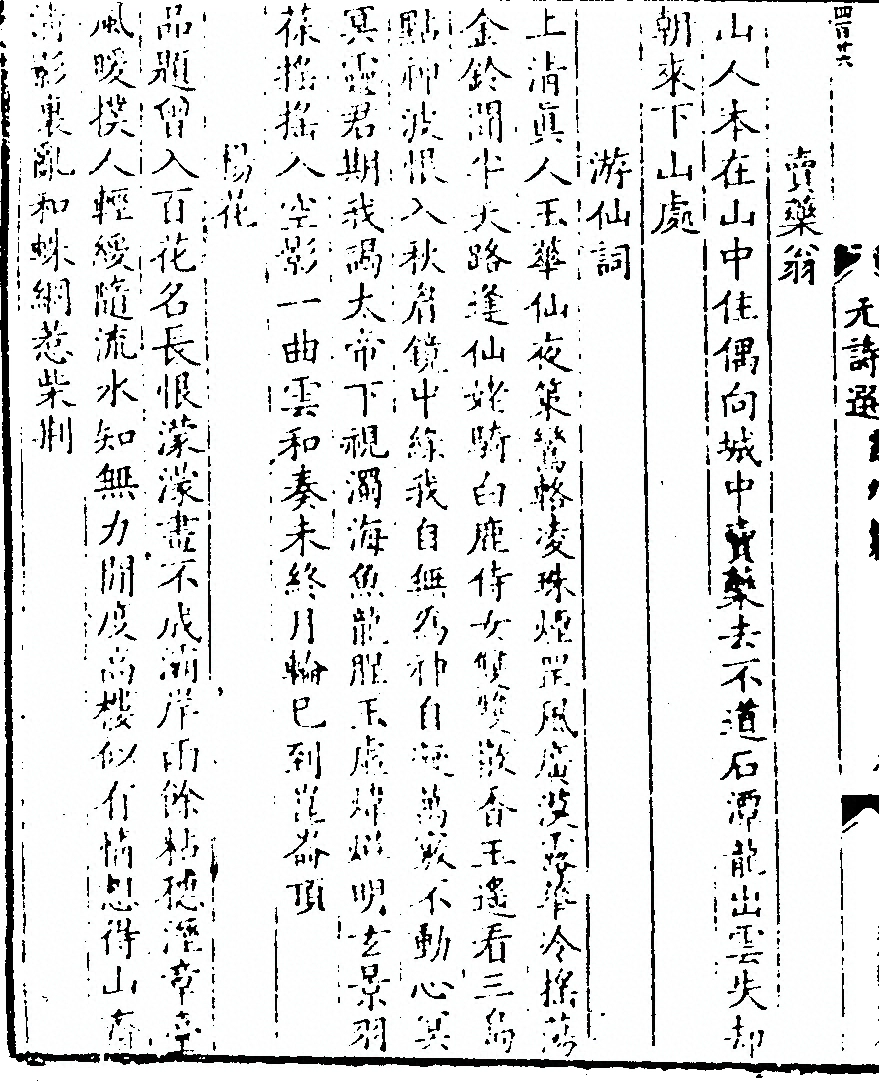 四百廿六
元詩選
賣藥翁
山人本在山中住偶向城中賣藥去不道石潭龍出雲失却
朝來下山處
游仙詞
上淸眞人玉華仙夜策鸞輅凌珠煙罡風廣漠露華冷搖蕩
金鈴聞半天路逢仙姥騎白鹿侍女雙雙散香玉遙看三島
點神波恨入秋眉鏡中綠我自無爲神自凝萬竅不動心冥
冥靈君期我謁太帝下視濁海魚龍腥玉虛煒煌明玄景羽
葆搖搖入空影一曲雲和奏未終月輪已到崑崙頂
楊花
品題曾入百花名長恨濛濛畫不成浦岸雨餘粘穗溼章臺
風暖撲人輕緩隨流水知無力閒度高樓似有情想得山齋
淸影裏亂和蛛網惹柴荆